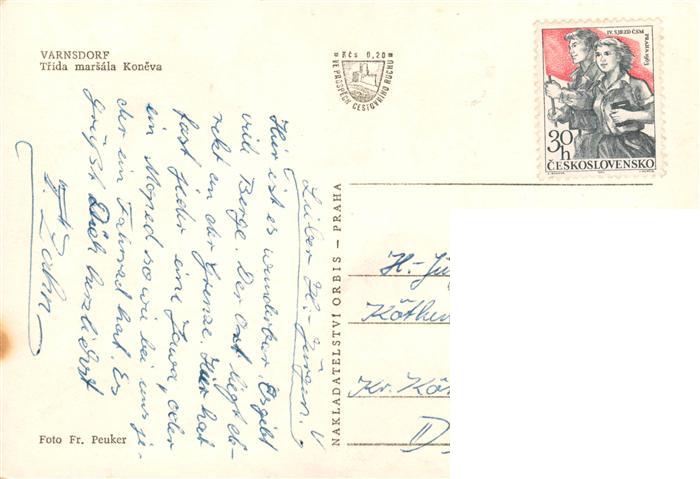 VARNSDORF
Třída maršála Koněva
Kčs 0,20
VE PROSPĚCH CESTOVNÍHO RUCHU
IV. SJEZD ČSM
PRAHA 1963
30h
ČESKOSLOVENSKO
Lieber H.-Jürgen!
Hier ist es wunderbar. Es gibt
viele Berge. Der Ort liegt di-
rekt an der Grenze. Hier hat
fast jeder eine Jawa, oder
ein Moped so wie bei uns je-
der ein Fahrrad hat. Es
grüßt Dich herzlichst
Zahn
NAKLADATELSTVÍ ORBIS – PRAHA
H.-Jü
Köthen
Kr. Köt
D
Foto Fr. Peuker